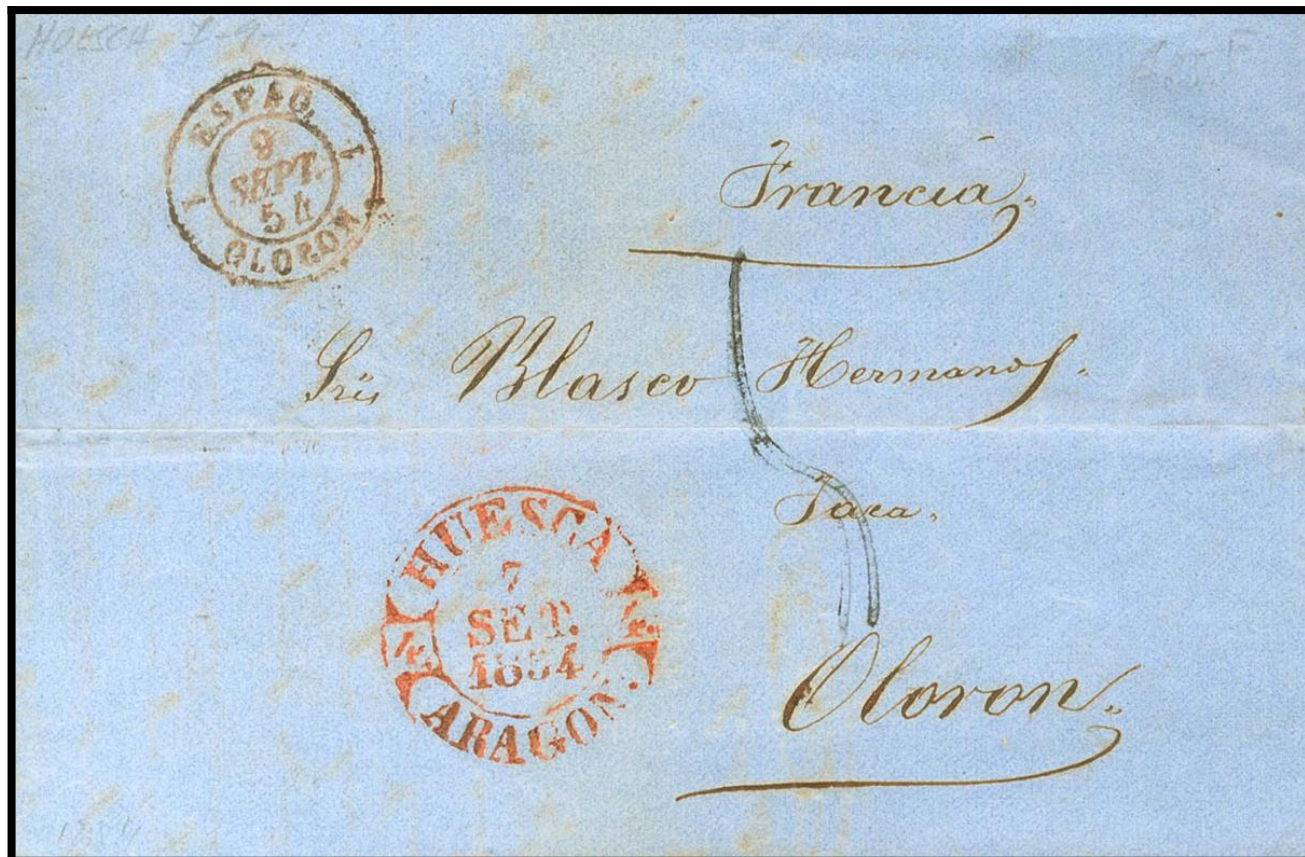 HUESCA 7-9-
ESPAG.
1 1
9
SEPT.
54
OLORON
Francia.
Sres Blasco Hermanos.
Jaca.
HUESCA
7
SET.
1854
ARAGON.
Oloron.